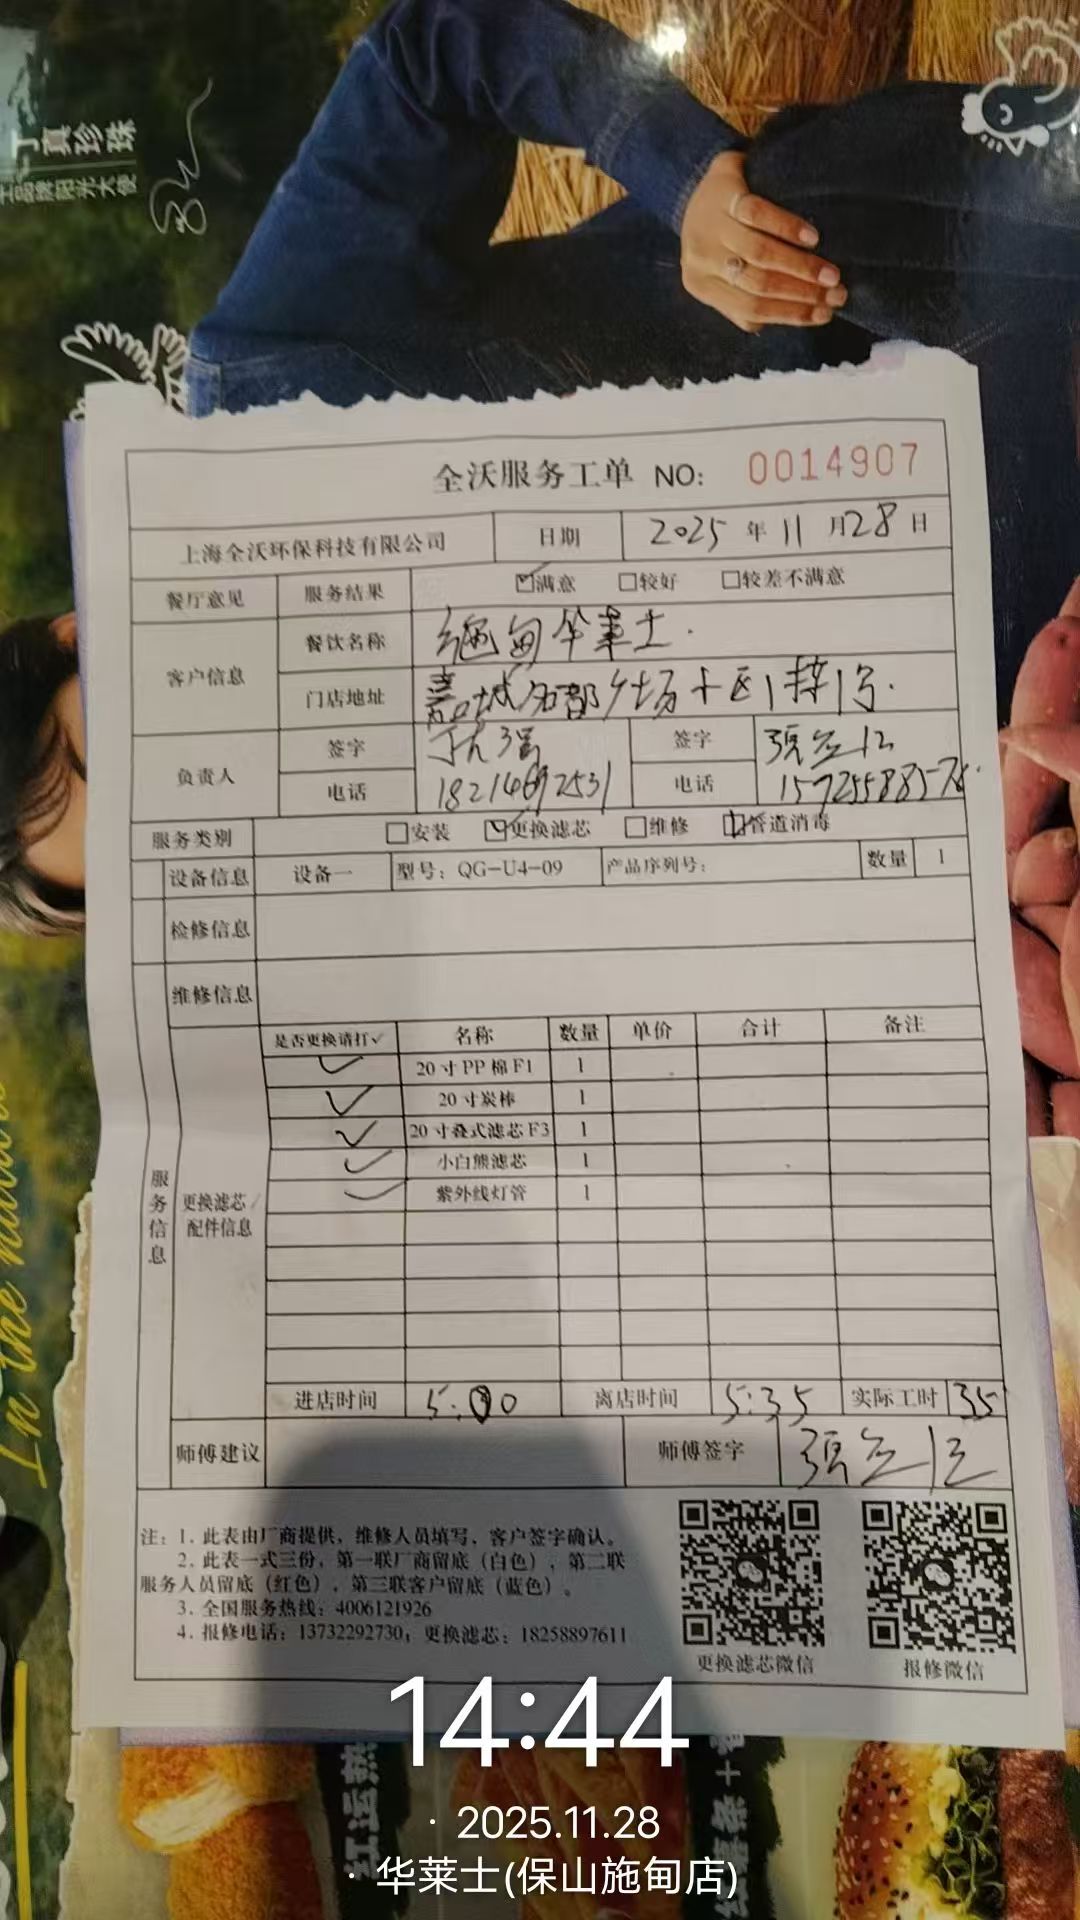 丁真珍珠
全沃服务工单 NO: 0014907
上海全沃环保科技有限公司 日期 2025 年 11 月 28 日
餐厅意见 服务结果 ☑满意 □较好 □较差不满意
客户信息 餐饮名称 缅甸华莱士.
门店地址 嘉城名都广场十区1撞1号.
负责人 签字 签字
电话 18214692531 电话 15725588578
服务类别 □安装 ☑更换滤芯 □维修 ☑管道消毒
设备信息 设备一 型号: QG-U4-09 产品序列号: 数量 1
检修信息
维修信息
服务信息 更换滤芯/配件信息
是否更换请打✓ 名称 数量 单价 合计 备注
✓ 20寸PP棉F1 1
✓ 20寸炭棒 1
✓ 20寸叠式滤芯F3 1
✓ 小白熊滤芯 1
✓ 紫外线灯管 1
进店时间 5:00 离店时间 5:35 实际工时 35
师傅建议 师傅签字
注: 1. 此表由厂商提供, 维修人员填写, 客户签字确认。
2. 此表一式三份, 第一联厂商留底 (白色), 第二联
服务人员留底 (红色), 第三联客户留底 (蓝色)。
3. 全国服务热线: 4006121926
4. 报修电话: 13732292730, 更换滤芯: 18258897611
更换滤芯微信 报修微信
In the
14:44
· 2025.11.28
· 华莱士(保山施甸店)